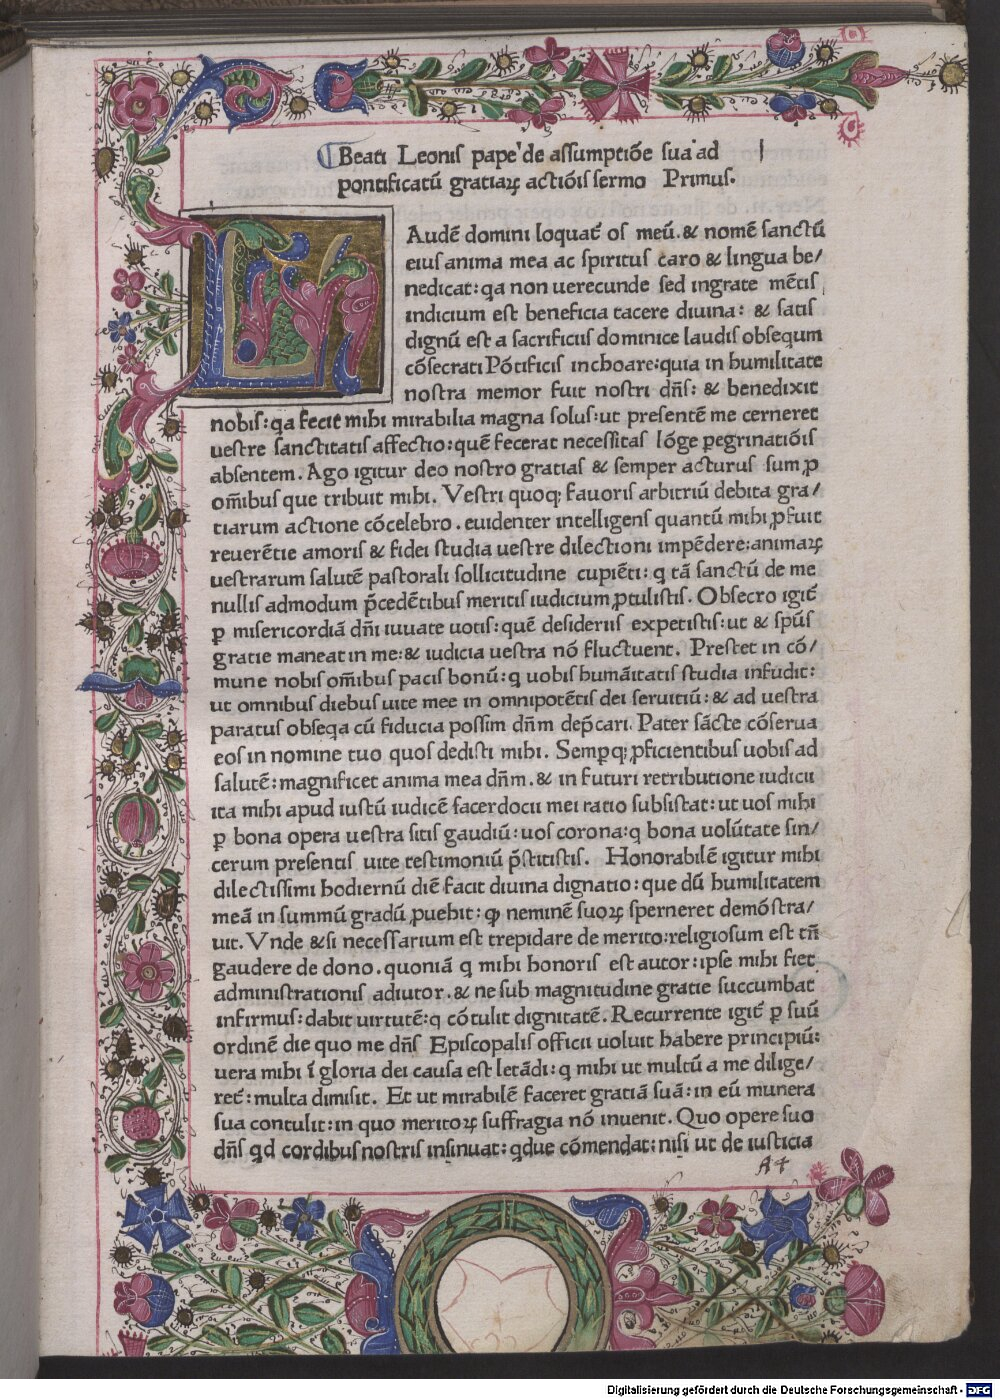 Beati Leonis pape' de assumptiõe sua ad
pontificatũ gratiaꝝ actiõis sermo Primus.
LAudẽ domini loquat᷑ os meũ. & nomẽ sanctũ
eius anima mea ac spiritus caro & lingua be/
nedicat: qa non uerecunde sed ingrate mẽtis
indicium est beneficia tacere diuina: & satis
dignũ est a sacrificiis dominice laudis obsequm
cõsecrati Põtificis inchoare: quia in humilitate
nostra memor fuit nostri dñs: & benedixit
nobis: qa fecit mihi mirabilia magna solus: ut presentẽ me cerneret
uestre sanctitatis affectio: quẽ fecerat necessitas lõge pegrinatiõis
absentem. Ago igitur deo nostro gratias & semper acturus sum ꝓ
om̃ibus que tribuit mihi. Vestri quoqꝫ fauoris arbitriũ debita gra/
tiarum actione cõcelebro. euidenter intelligens quantũ mihi ꝓfuit
reuerẽtie amoris & fidei studia uestre dilectioni impẽdere: animaꝝ
uestrarum salutẽ pastorali sollicitudine cupiẽti: q tã sanctũ de me
nullis admodum p̃cedẽtibus meritis iudicium ꝓtulistis. Obsecro igit᷑
ꝑ misericordiã dñi iuuate uotis: quẽ desideriis expetistis: ut & sp̃us
gratie maneat in me: & iudicia uestra nõ fluctuent. Prestet in cõ/
mune nobis om̃ibus pacis bonũ: q uobis humãitatis studia infudit:
ut omnibus diebus uite mee in omnipotẽtis dei seruitiũ: & ad uestra
paratus obseqa cũ fiducia possim dñm dep̃cari. Pater sãcte cõserua
eos in nomine tuo quos dedisti mihi. Sempqꝫ ꝓficientibus uobis ad
salutẽ: magnificet anima mea dñm. & in futuri retributione iudicii
ita mihi apud iustũ iudicẽ sacerdocii mei ratio subsistat: ut uos mihi
ꝑ bona opera uestra sitis gaudiũ: uos corona: q bona uolũtate sin/
cerum presentis uite testimoniũ p̃stitistis. Honorabilẽ igitur mihi
dilectissimi hodiernũ diẽ facit diuina dignatio: que dũ humilitatem
meã in summũ gradũ ꝓuehit: ꝙ neminẽ suoꝝ sperneret demõstra/
uit. Vnde & si necessarium est trepidare de merito: religiosum est tñ
gaudere de dono. quoniã q mihi honoris est autor: ipse mihi fiet
administrationis adiutor. & ne sub magnitudine gratie succumbat
infirmus: dabit uirtutẽ: q cõtulit dignitatẽ. Recurrente igit᷑ ꝑ suũ
ordinẽ die quo me dñs Episcopalis officii uoluit habere principiũ:
uera mihi ĩ gloria dei causa est letãdi: q mihi ut multũ a me dilige/
ret᷑: multa dimisit. Et ut mirabilẽ faceret gratiã suã: in eũ munera
sua contulit: in quo meritoꝝ suffragia nõ inuenit. Quo opere suo
dñs qd cordibus nostris insinuat: qdue cõmendat: nisi ut de iusticia
Digitalisierung gefördert durch die Deutsche Forschungsgemeinschaft - DFG